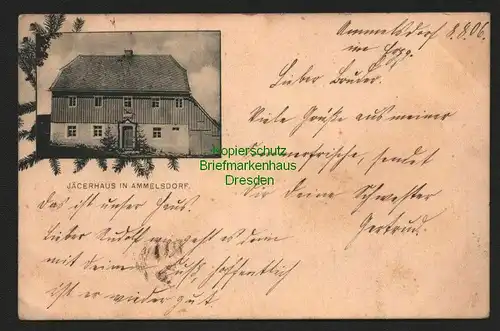 Ammelsdorf 8.8.06.
im Erzg.
Lieber Bruder.
Viele Grüße aus meiner
Sommerfrische, sendet
Dir deine Schwester
Gertrud.
Kopierschutz
Briefmarkenhaus
Dresden
JÄGERHAUS IN AMMELSDORF.
Das ist unser Haus.
Lieber Rudolf wie geht es denn
mit deinem Fuß, hoffentlich
ist er wieder gut.